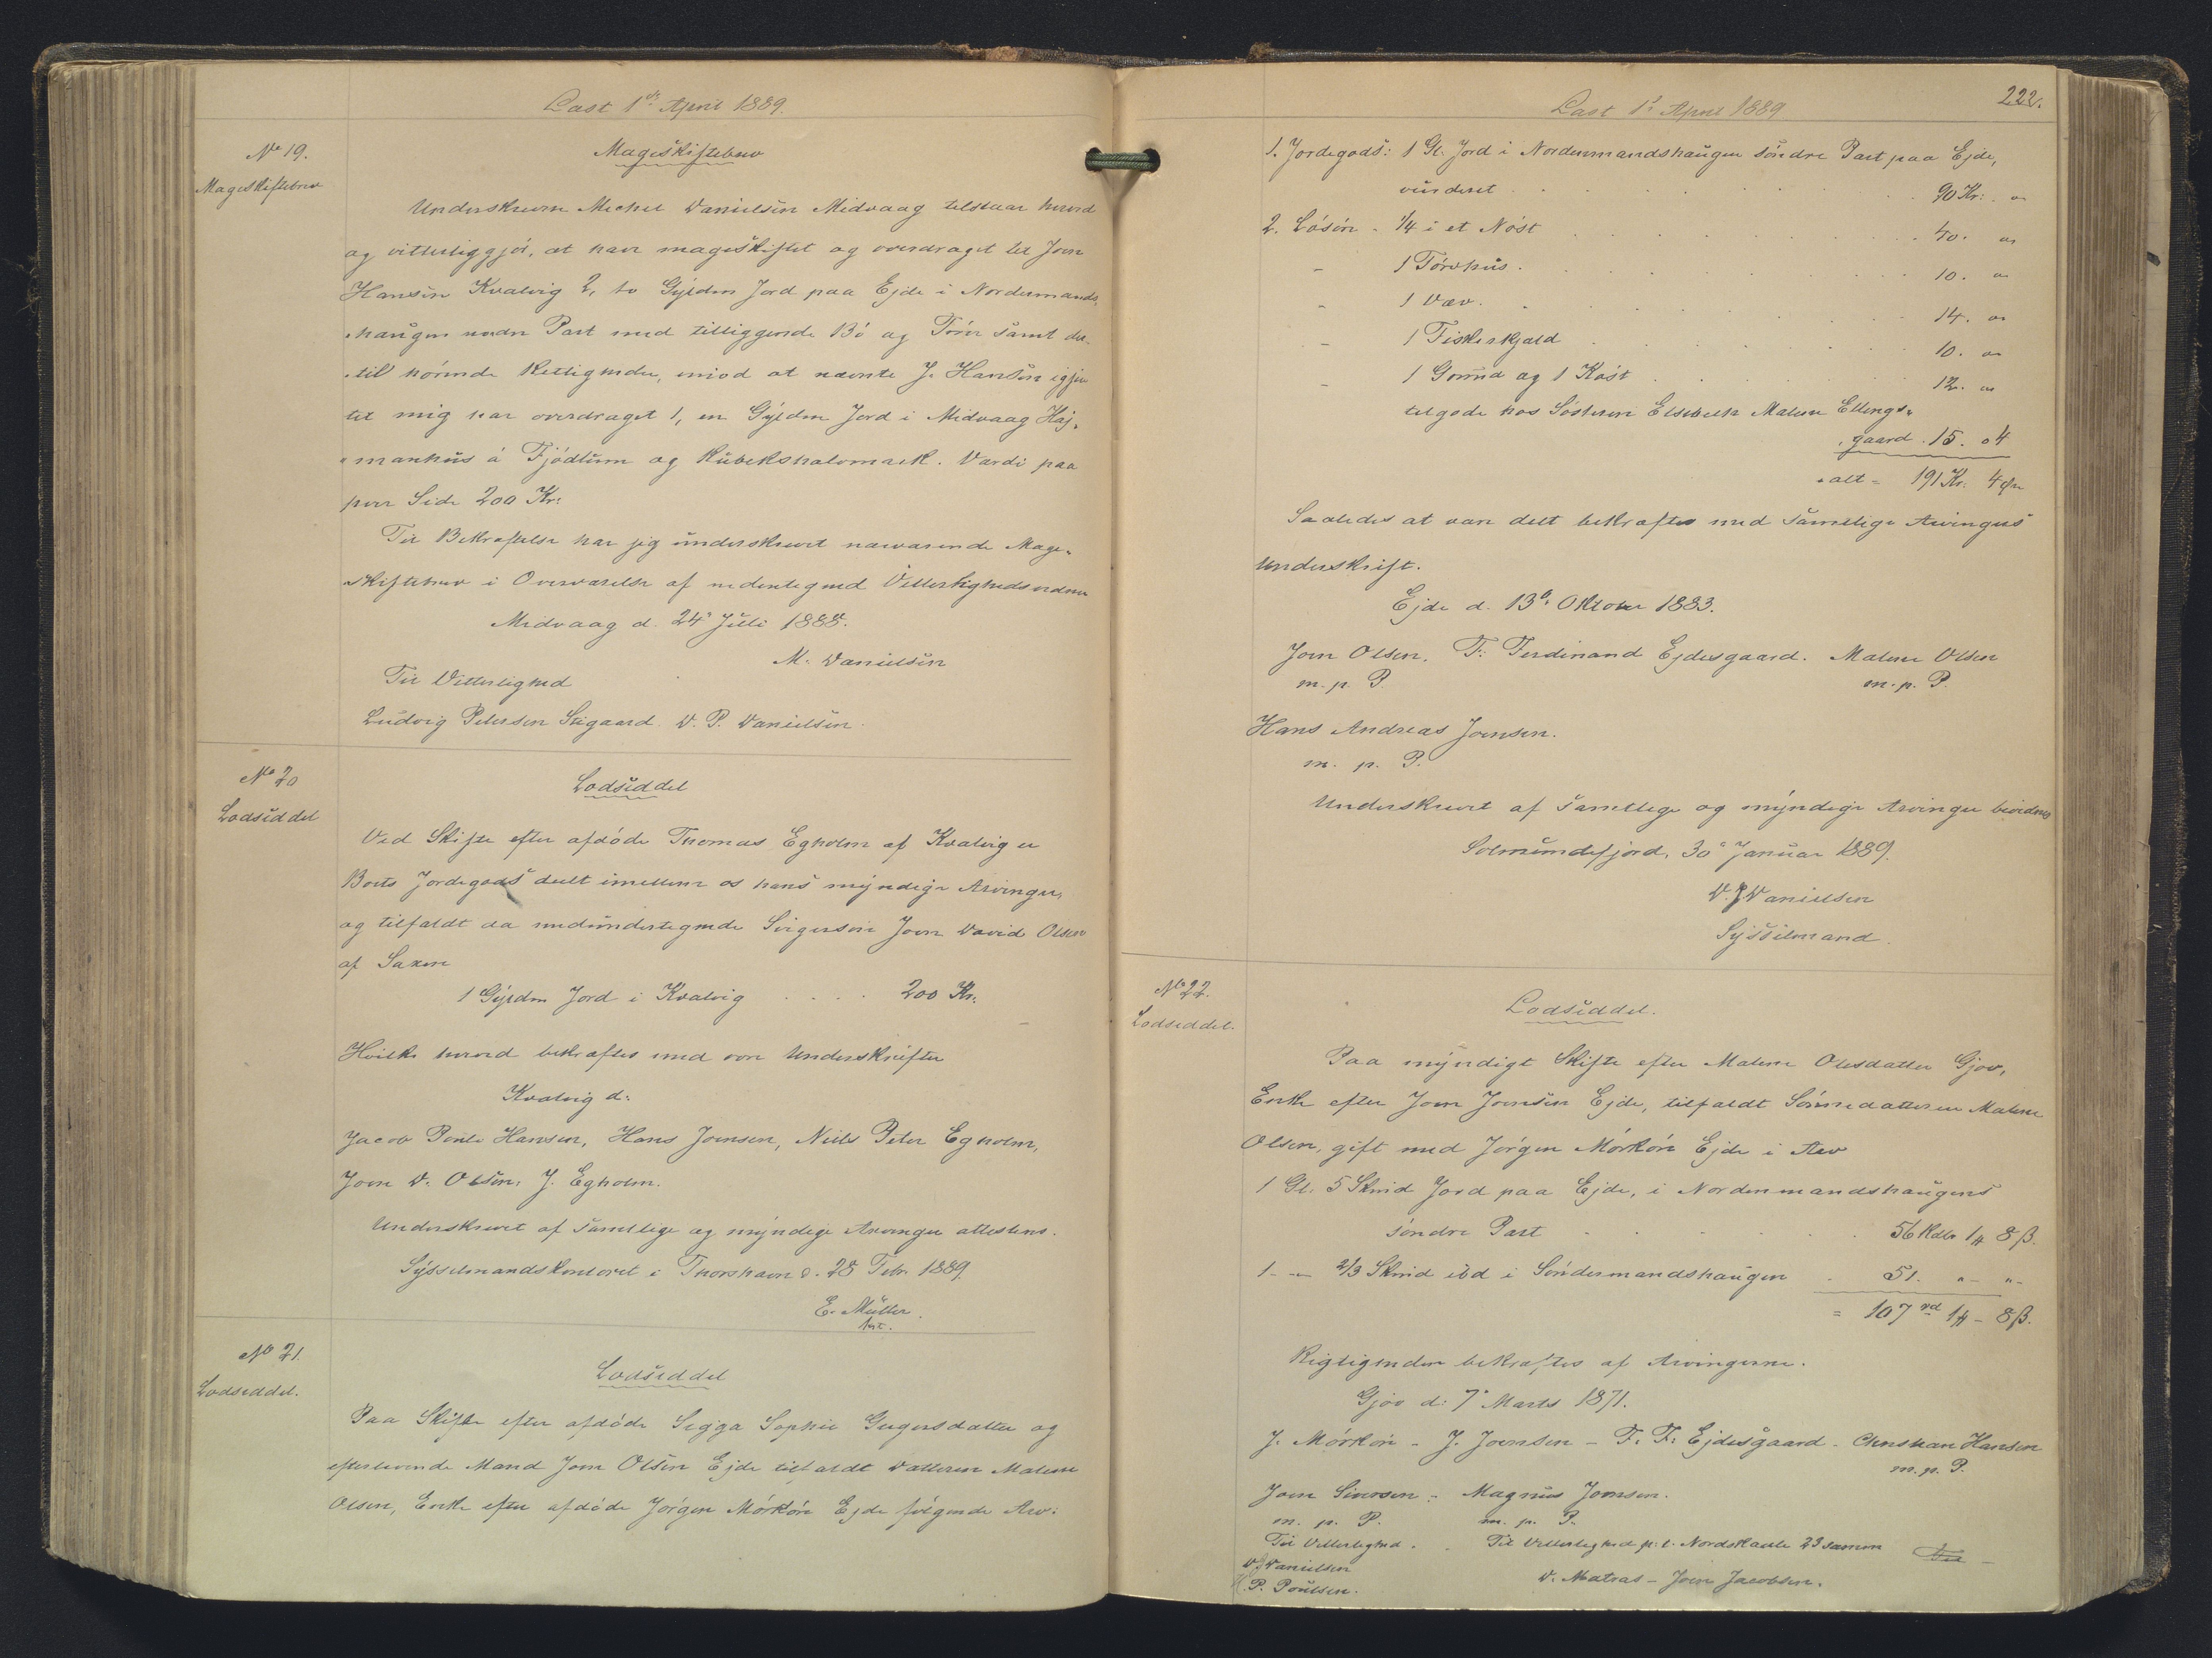 Læst 1ste April 1889.
No 19.
Mageskiftebrev
Mageskiftebrev
Underskrevne Michel Danielsen Midvaag tilstaar herved
og vitterliggjör, at have mageskiftet og overdraget til Joen
Hansen Kvalvig 2, to Gylden Jord paa Ejde i Nordenmands-
haugen nedre Part med tilliggende Bö og Törv samt der-
til hörende Rettigheder, imod at nævnte J. Hansen igjen
til mig har overdraget 1, en Gylden Jord i Midvaag Haj-
manhus á Fjödlum og Kubekshalvmark. Værdi paa
hver Side 200 Kr:
Til Bekræftelse har jeg underskrevet nærværende Mage-
skiftebrev i Overværelse af nedentegned Vitterlighedsvidner
Midvaag d. 24' Juli 1888.
M. Danielsen
Til Vitterlighed
Ludvig Petersen Stigaard. D. P. Danielsen.
No 20
Lodseddel
Lodseddel
Ved Skifte efter afdöde Thomas Egholm af Kvalvig er
Boets Jordegods deelt imellem os hans myndige Arvinger,
og tilfaldt da nedundertegnede Svigersön Joen David Olsen
af Saxen
1 Gylden Jord i Kvalvig . . . . 200 Kr.
Hvilke herved bekræftes med vore Underskrifter
Kvalvig d:
Jacob Poule Hansen, Hans Joensen, Niels Peter Egholm,
Joen D. Olsen. J. Egholm.
Underskrevet af samtlige og myndige Arvinger attesteres.
Sysselmandskontoret i Thorshavn d. 28 Febr. 1889
E. Müller.
kst.
No 21.
Lodseddel.
Lodseddel
Paa Skifte efter afdöde Sigga Sophie Gregersdatter og
efterlevende Mand Joen Olsen Ejde tilfaldt Datteren Malene
Olsen, Enke efter afdöde Jörgen Mörköre Ejde fölgende Arv:
Læst 1' April 1889
222.
1. Jordegods: 1 Gl. Jord i Nordenmandshaugen söndre Part paa Ejde,
vurderet . . . . 90 Kr: . "
2. Lösöre - 1/4 i et Nöst . . . . 40. "
- 1 Törvhus. . . . 10. "
- 1 Væv. . . . 14. "
- 1 Fiskeskjæld . . . 10. "
- 1 Grund og 1 Kást . . . 12. "
tilgode hos Sösteren Elsebeth Malene Ellings-
gaard . 15. 04
alt = 191 Kr. 4 Øre
Saaledes at være delt bekræftes med samtlige Arvingers
Underskrift.
Ejde d. 13de Oktober 1883.
Joen Olsen. F. Ferdinand Ejdesgaard. Malene Olsen
m. p. P. m. p. P.
Hans Andreas Joensen.
m. p. P.
Underskrevet af samtlige og myndige Arvinger bevidnes
Solmundefjord, 30' Januar 1889.
D. J Danielsen
Sysselmand.
No 22.
Lodseddel.
Lodseddel.
Paa myndigt Skifte efter Malene Olesdatter Gjov,
Enke efter Joen Joensen Ejde, tilfaldt Sönnedatteren Malene
Olsen, gift med Jörgen Mörköre Ejde i Arv
1 Gl: 5 Skind Jord paa Ejde, i Nordenmandshaugens
söndre Part . . . . 56 Rdlr 1 # 8 ß.
1 - - 2/3 Skind ibd i Söndermandshaugen . 51. " - " -
= 107 rd 1 # - 8 ß.
Rigtigheden bekræftes af Arvingerne.
Gjov d: 7' Marts 1871.
J. Mörköre - J. Joensen - F: F: Ejdesgaard - Christian Hansen
m. p. P.
Joen Siversen. Magnus Jonsen.
m. p. P. m. p. P.
Til Vitterlighed. Til Vitterlighed p. t. Nordskaale 23 samme
D. J Danielsen
P. Poulsen. D. Matras - Joen Jacobsen.